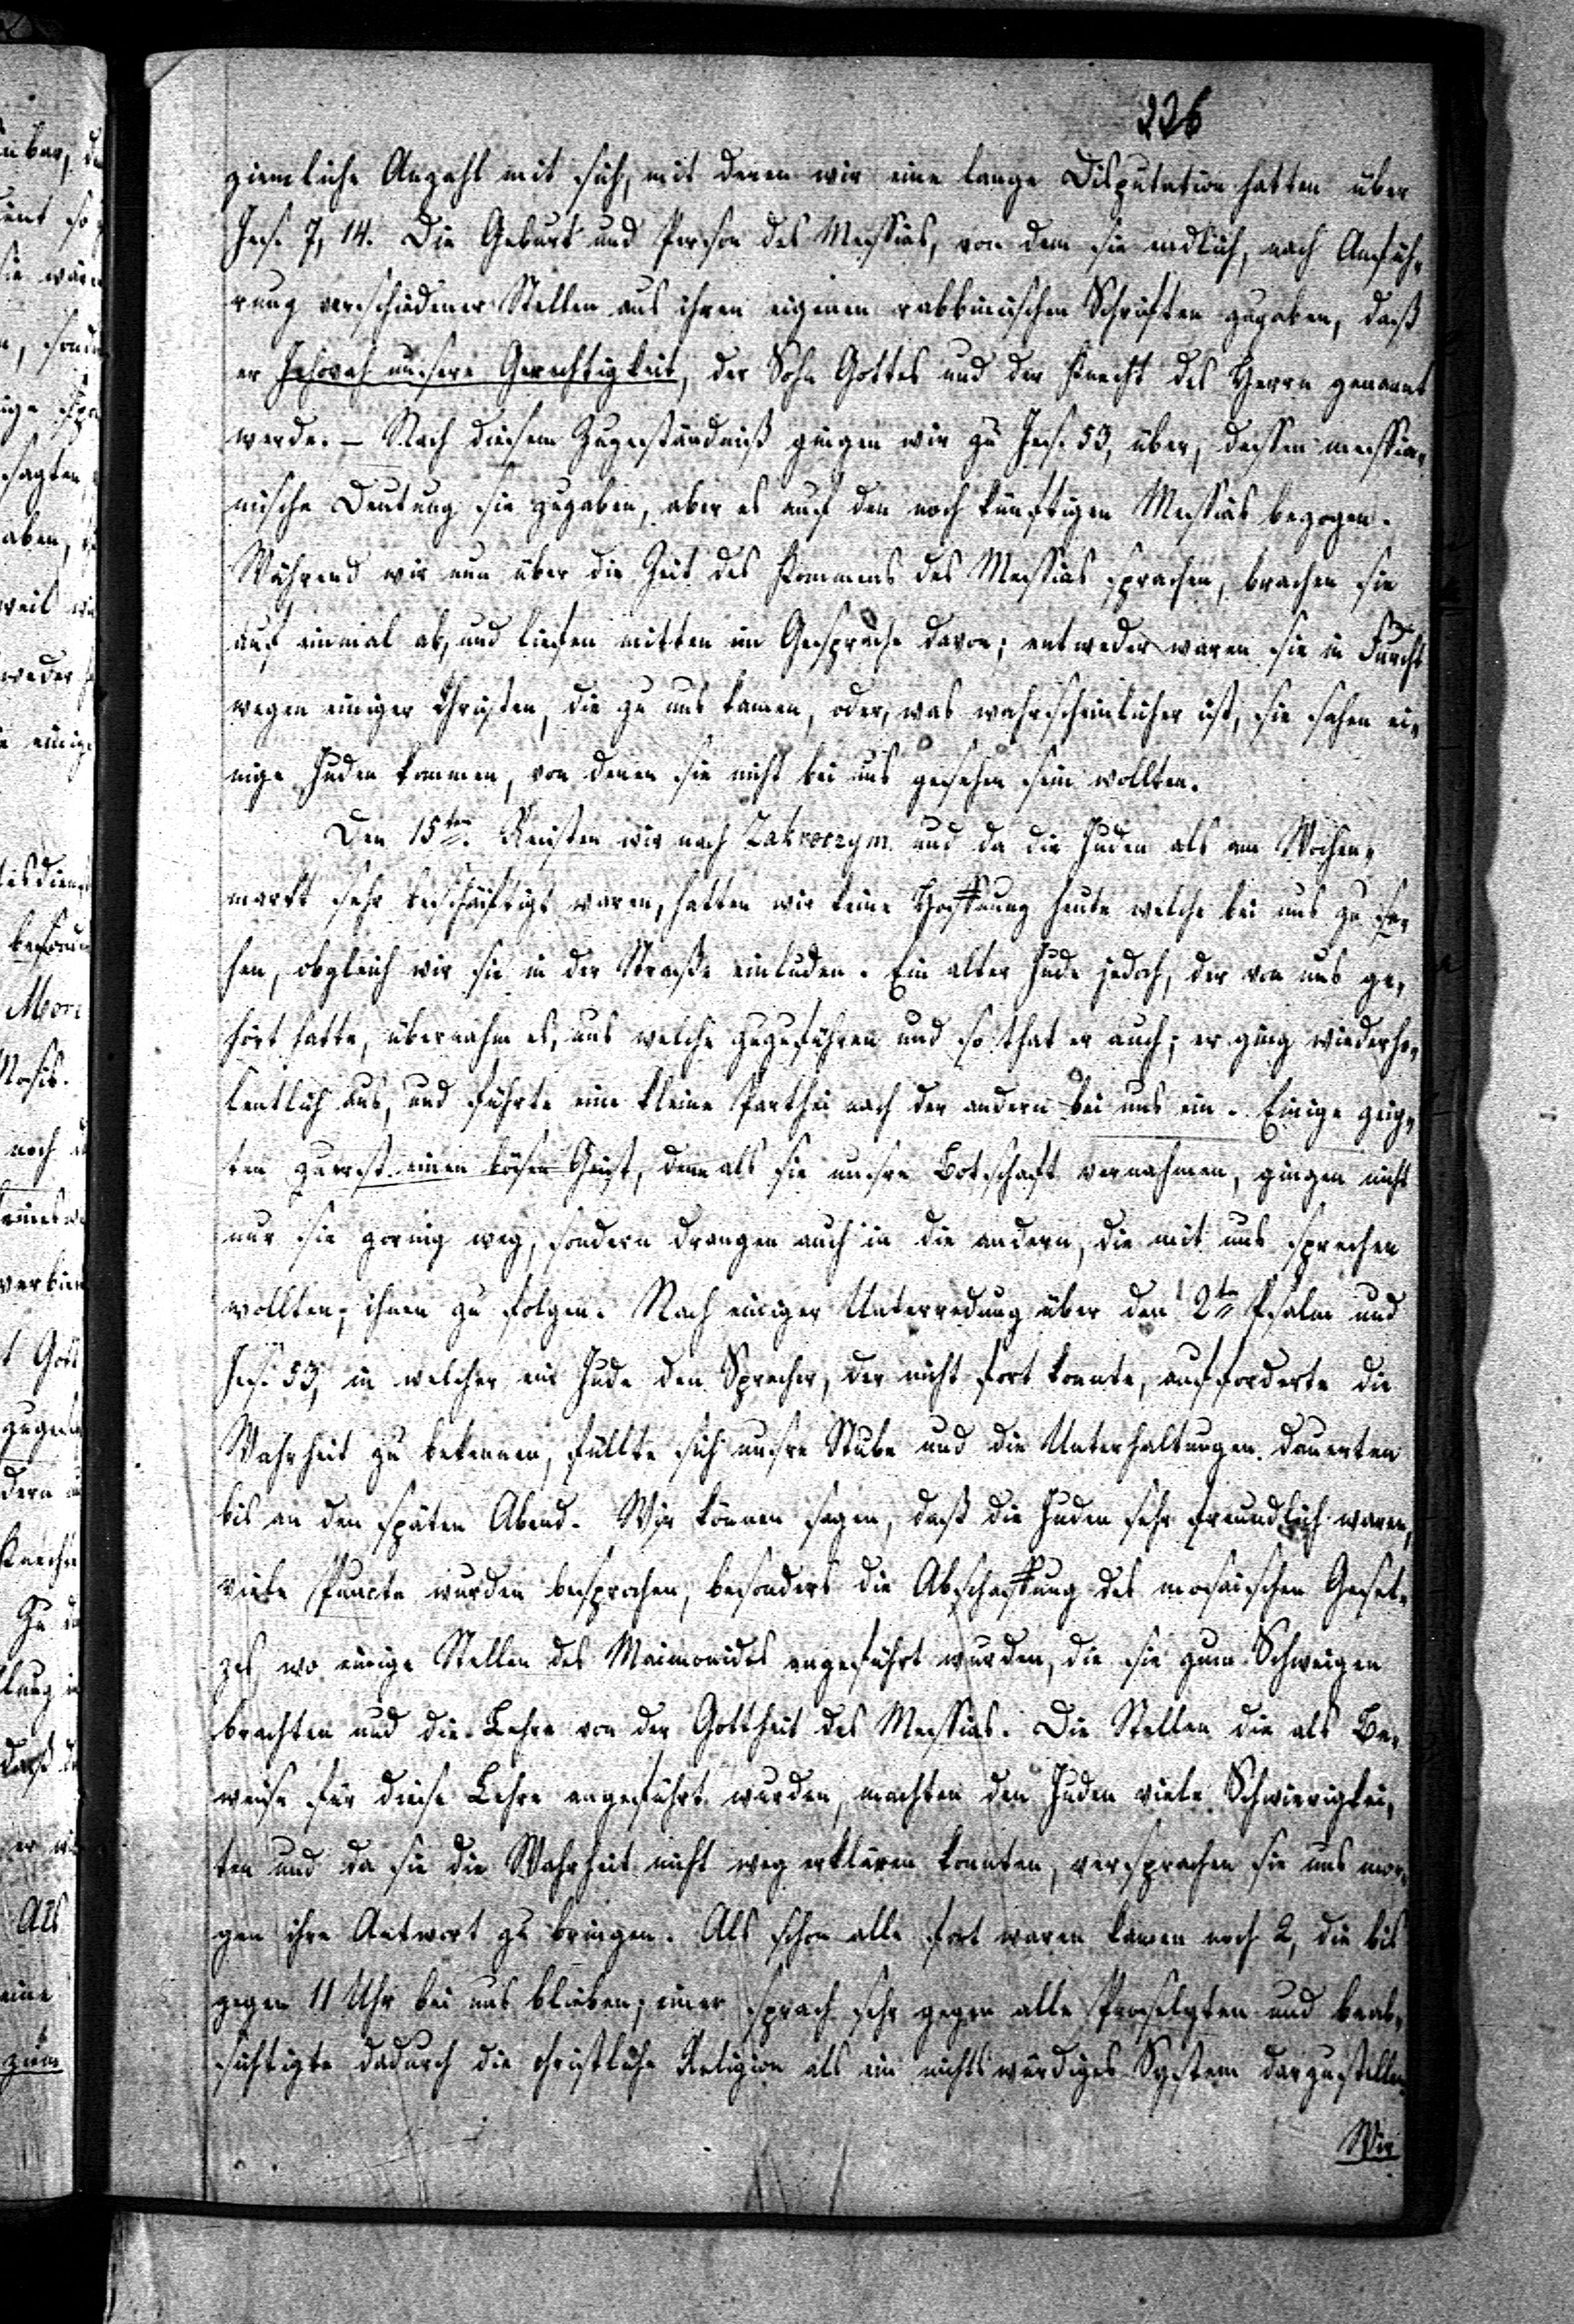 226
ziemliche Anzahl mit sich, mit denen wir eine lange Disputation hatten über
Jes. 7, 14. Die Geburt und Person des Messias, von dem sie endlich, nach Anfüh-
rung verschiedener Stellen aus ihren eigenen rabbinischen Schriften zugaben, daß
er Jehovah unsere Gerechtigkeit, der Sohn Gottes und der Knecht des Herrn genannt
werde. – Nach diesem Zugeständniß gingen wir zu Jes. 53, über, dessen messia-
nische Deutung sie zugaben, aber es auf den noch künftigen Messias bezogen.
Während wir nun über die Zeit des Kommens des Messias sprachen, brachen sie
auf einmal ab, und liefen mitten im Gespräche davon; entweder waren sie in Furcht
wegen einiger Christen, die zu uns kamen, oder, was wahrscheinlicher ist, sie sahen ei-
nige Juden kommen, von denen sie nicht bei uns gesehen sein wollten.
Den 15ten. Reisten wir nach Zakroczym und da die Juden als am Wochen-
markt sehr beschäftigt waren, hatten wir keine Hoffnung heute welche bei uns zu se-
hen, obgleich wir sie in der Straße einluden. Ein alter Jude jedoch, der von uns ge-
hört hatte, übernahm es, uns welche zuzuführen und so that er auch; er ging wiederho-
lentlich aus, und führte eine kleine Parthei nach der andern bei uns ein. Einige zeig-
ten zuerst einen bösen Geist, denn als sie unsre Botschaft vernahmen, gingen nicht
nur sie zornig weg, sondern drangen auch in die andern, die mit uns sprechen
wollten, ihnen zu folgen. Nach einiger Unterredung über den 2ten Psalm und
Jes. 53, in welcher ein Jude den Sprecher, der nicht fort konnte, aufforderte die
Wahrheit zu bekennen, füllte sich unsre Stube und die Unterhaltungen dauerten
bis an den späten Abend. Wir können sagen, daß die Juden sehr freundlich waren,
viele Puncte wurden besprochen, besonders die Abschaffung des mosaischen Geset-
zes, wo einige Stellen des Maimonides angeführt wurden, die sie zum Schweigen
brachten und die Lehre von der Gottheit des Messias. Die Stellen die als Be-
weise für diese Lehre angeführt wurden, machten den Juden viele Schwierigkei-
ten und da sie die Wahrheit nicht weg erklären konnten, versprachen sie uns mor-
gen ihre Antwort zu bringen. Als schon alle fort waren kamen noch 2, die bis
gegen 11 Uhr bei uns blieben; einer sprach sehr gegen alle Proselyten und beab-
sichtigte dadurch die christliche Religion als ein nichtswürdiges System darzustellen.
Wir